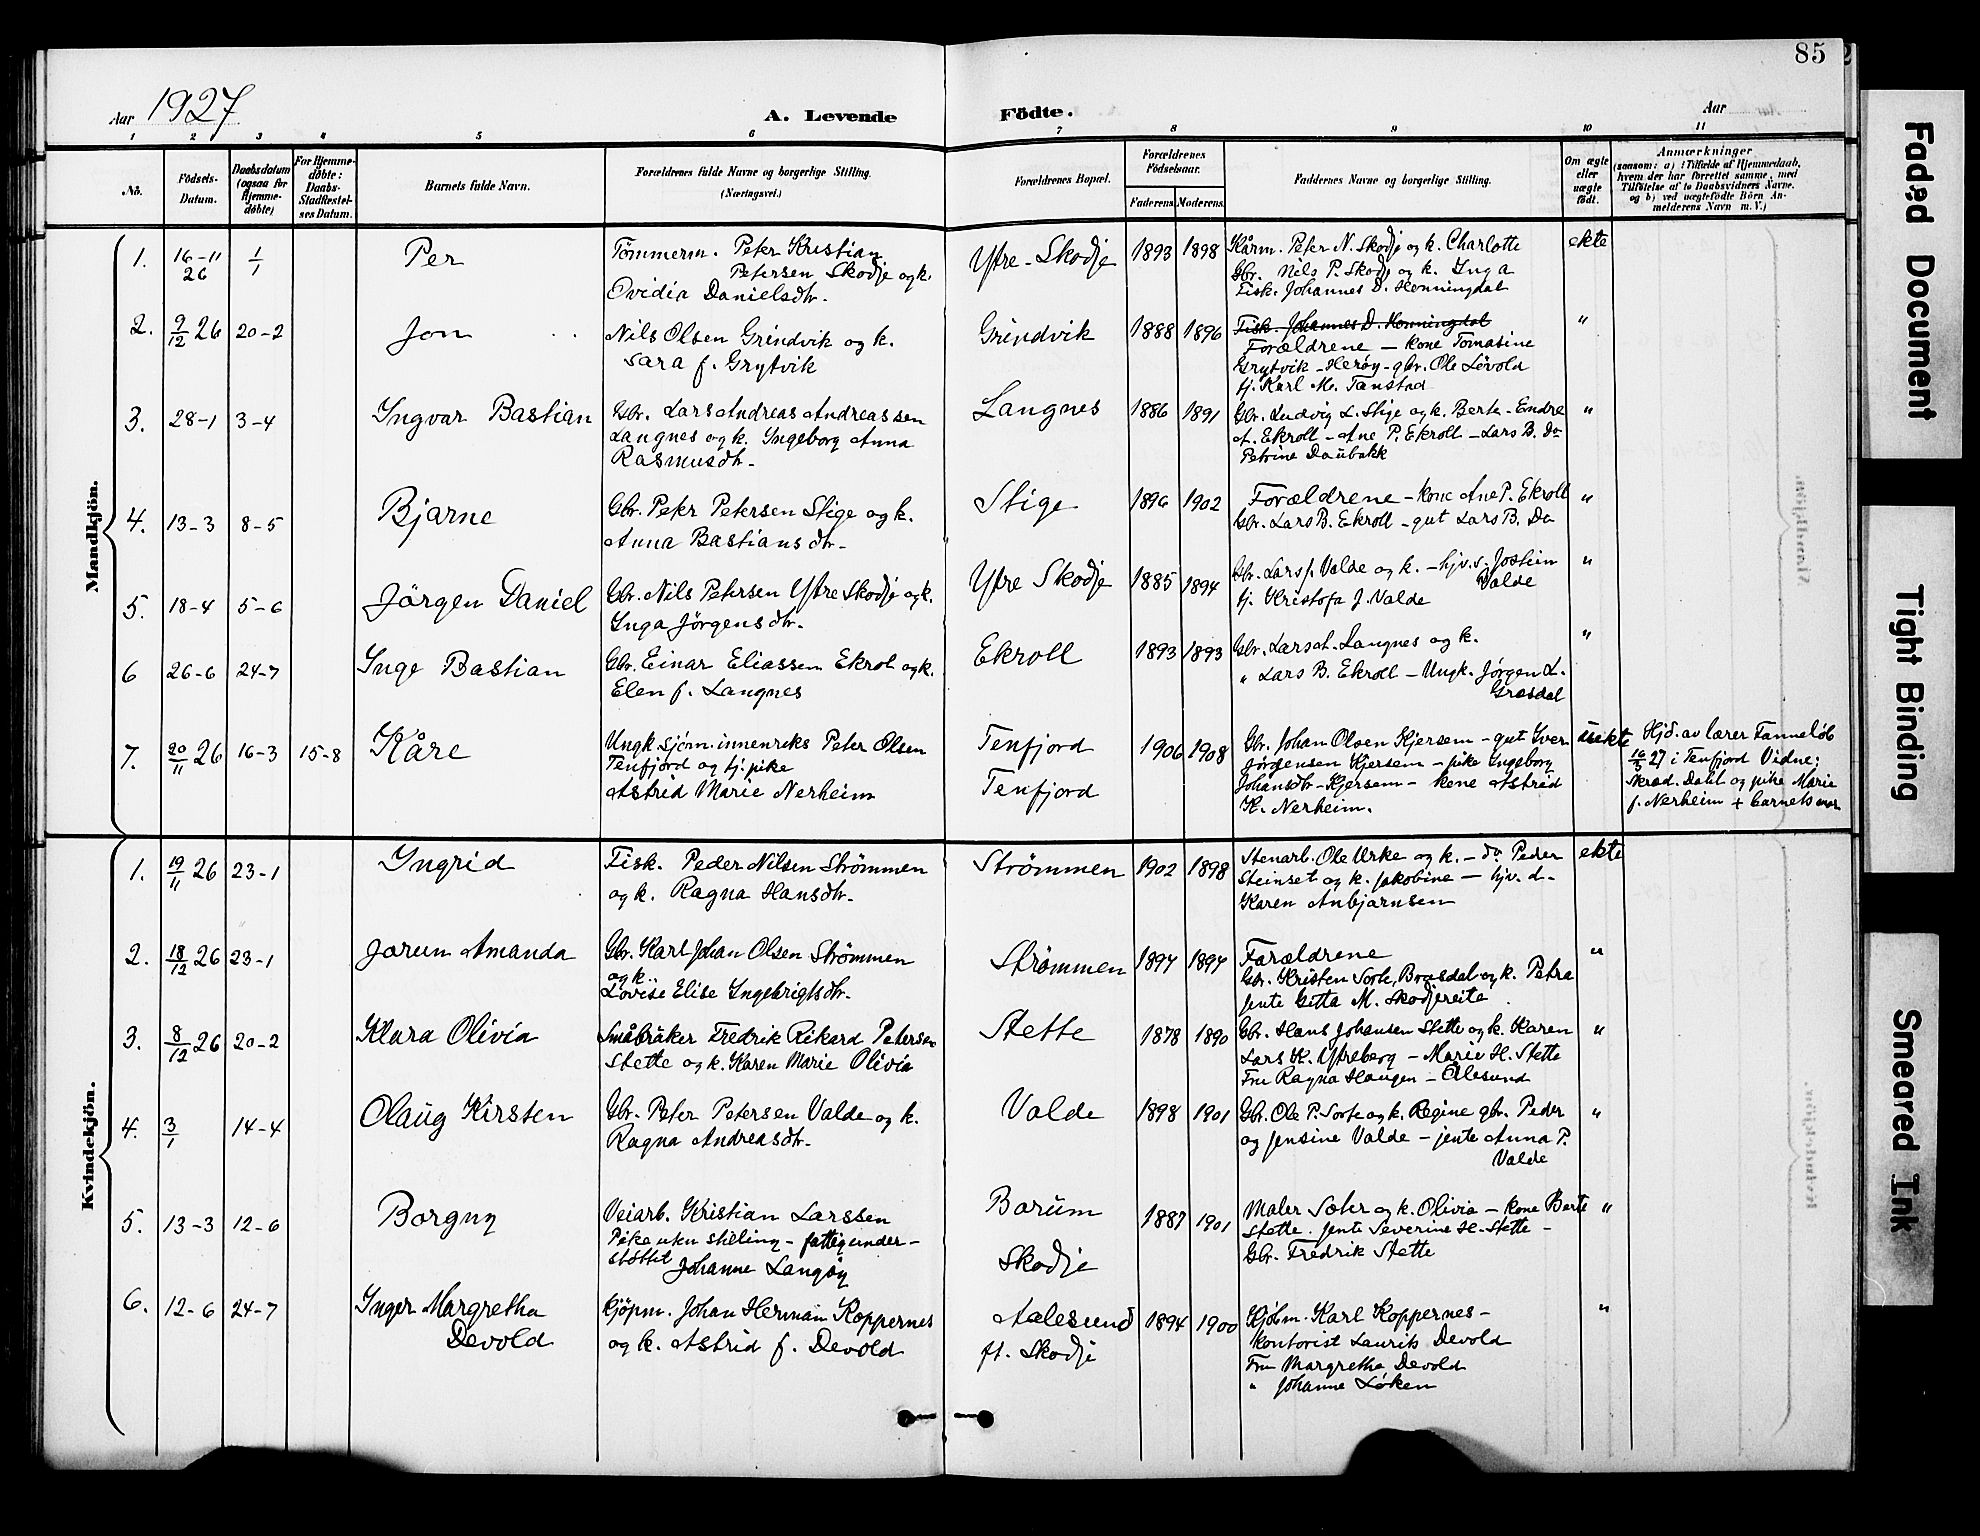 85
Aar 1927
A. Levende Födte.
Aar
1 2 3 4 5 6 7 8 9 10 11
No.
Födsels-Datum.
Daabsdatum (ogsaa for Hjemme-døbte)
For Hjemme-døbte: Daabs-Stadfæstel-ses Datum.
Barnets fulde Navn.
Forældrenes fulde Navne og borgerlige Stilling.
(Næringsvei.)
Forældrenes Bopæl.
Forældrenes Födselsaar.
Faderens Moderens
Faddernes Navne og borgerlige Stilling.
Om ægte eller uægte födt.
Anmærkninger
(saasom: a) i Tilfælde af Hjemmedaab, hvem der har forrettet samme, med Tilföielse af to Daabsvidners Navne, og b) ved uægtefödte Börn An-melderens Navn m. V.)
Mandkjön.
1. 16-11 26 1/1 Per
Tömmerm. Peter Kristian
Petersen Skodje og k.
Ovidia Danielsdtr.
Ytre-Skodje 1893 1898
Kårm. Peter N. Skodje og k. Charlotte
Gbr. Nils P. Skodje og k. Inga
Fisk. Johannes D. Henningdal
ekte
2. 9/12 26 20-2 Jon
Nils Olsen Grindvik og k.
Sara f. Grytvik
Grindvik 1888 1896
Fisk. Johannes D. Henningdal
Forældrene — kone Tomasine
Grytvik - Herøy - gbr. Ole Lövold
tj. Karl M. Tanstad
"
3. 28-1 3-4 Ingvar Bastian
Gbr. Lars Andreas Andreassen
Langnes og k. Ingeborg Anna
Rasmusdtr.
Langnes 1886 1891
Gbr. Ludvig L. Stige og k. Berte - Endre
A. Ekroll - Ane P. Ekroll - Lars B. Do
Petrine Daubakk
"
4. 13-3 8-5 Bjarne
Gbr. Peter Petersen Stige og k.
Anna Bastiansdtr.
Stige 1896 1902
Forældrene - kone Ane P. Ekroll
Gbr. Lars B. Ekroll - gut Lars B. Do
"
5. 18-4 5-6 Jörgen Daniel
Gbr. Nils Petersen Ytre Skodje og k.
Inga Jörgensdtr.
Ytre Skodje 1885 1894
Gbr. Lars P. Valde og k. - hjv. s. Jostein
Valde
tj. Kristofa J. Valde
"
6 26-6 24-7 Inge Bastian
Gbr. Einar Eliassen Ekrol og k.
Elen f. Langnes
Ekroll 1893 1893
Gbr. Lars A. Langnes og k.
" Lars B. Ekroll - Ungk. Jörgen L.
Grasdal
"
7. 20/11 26 16-3 15-8 Kåre
Ungk. sjöm. innenriks Peter Olsen
Tenfjord og tj. pike
Astrid Marie Nerheim
Tenfjord
Tenfjord
1906 1908
Gbr. Johan Olsen Kjersem - gut Iver
Jörgensen Kjersem - pike Ingeborg
Johansdtr - Kjersem - kone Astrid
K. Nerheim.
uekte
Hjd. av lærer Tanneløb
16/3 27 i Tenfjord Vidne:
Skræd. Dahl og pike Marie
f. Nerheim + barnets mor
Kvindekjön.
1. 19/11 26 23-1 Ingrid
Fisk. Peder Nilsen Strömmen
og k. Ragna Hansdtr.
Strömmen 1902 1898
Stenarb. Ole Urke og k. - do Peder
Steinset og k. Jakobine — hjv. d.
Karen Anbjørnsen
ekte
2. 18/12 26 23-1 Jorun Amanda
Gbr. Karl Johan Olsen Strömmen
og k.
Lovise Elise Ingebrigtsdtr.
Strømmen 1894 1894
Forældrene
Gbr. Kristen Sorte, Brusdal og k. Petra
jente Gitta M. Skodjereite
"
3. 8/12 26 20-2 Klara Olivia
Småbruker Fredrik Rikard Petersen
Stette og k. Karen Marie Olivia
Stette 1878 1890
Gbr. Hans Johansen Stette og k. Karen
Lars K. Ytreberg - Marie H. Stette
Fru Ragna Haugen - Ålesund
"
4. 3/1 14-4 Olaug Kirsten
Gbr. Peter Petersen Valde og k.
Ragna Andreasdtr.
Valde 1898 1901
Gbr. Ole P. Sorte og k. Regine gbr. Peder
og Jensine Valde - jente Anna P.
Valde
"
5. 13-3 12-6 Borgny
Veiarb. Kristian Larssen
Pike uten stilling - fattigunder-
støttet Johanne Langöy
Bærum
Skodje
1887 1901
Maler Sæter og k. Olivia - kone Berte
Stette. jente Severine H. Stette -
Gbr. Fredrik Stette
"
6. 12-6 24-7 Inger Margretha
Devold
Kjöpm. Johan Herman Koppernes
og k. Astrid f. Devold
Aalesund
ft. Skodje
1894 1900
Kjöbm. Karl Koppernes -
kontorist Laurits Devold
Fru Margretha Devold
" Johanne Løken
"
Faded Document
Tight Binding
Smeared Ink